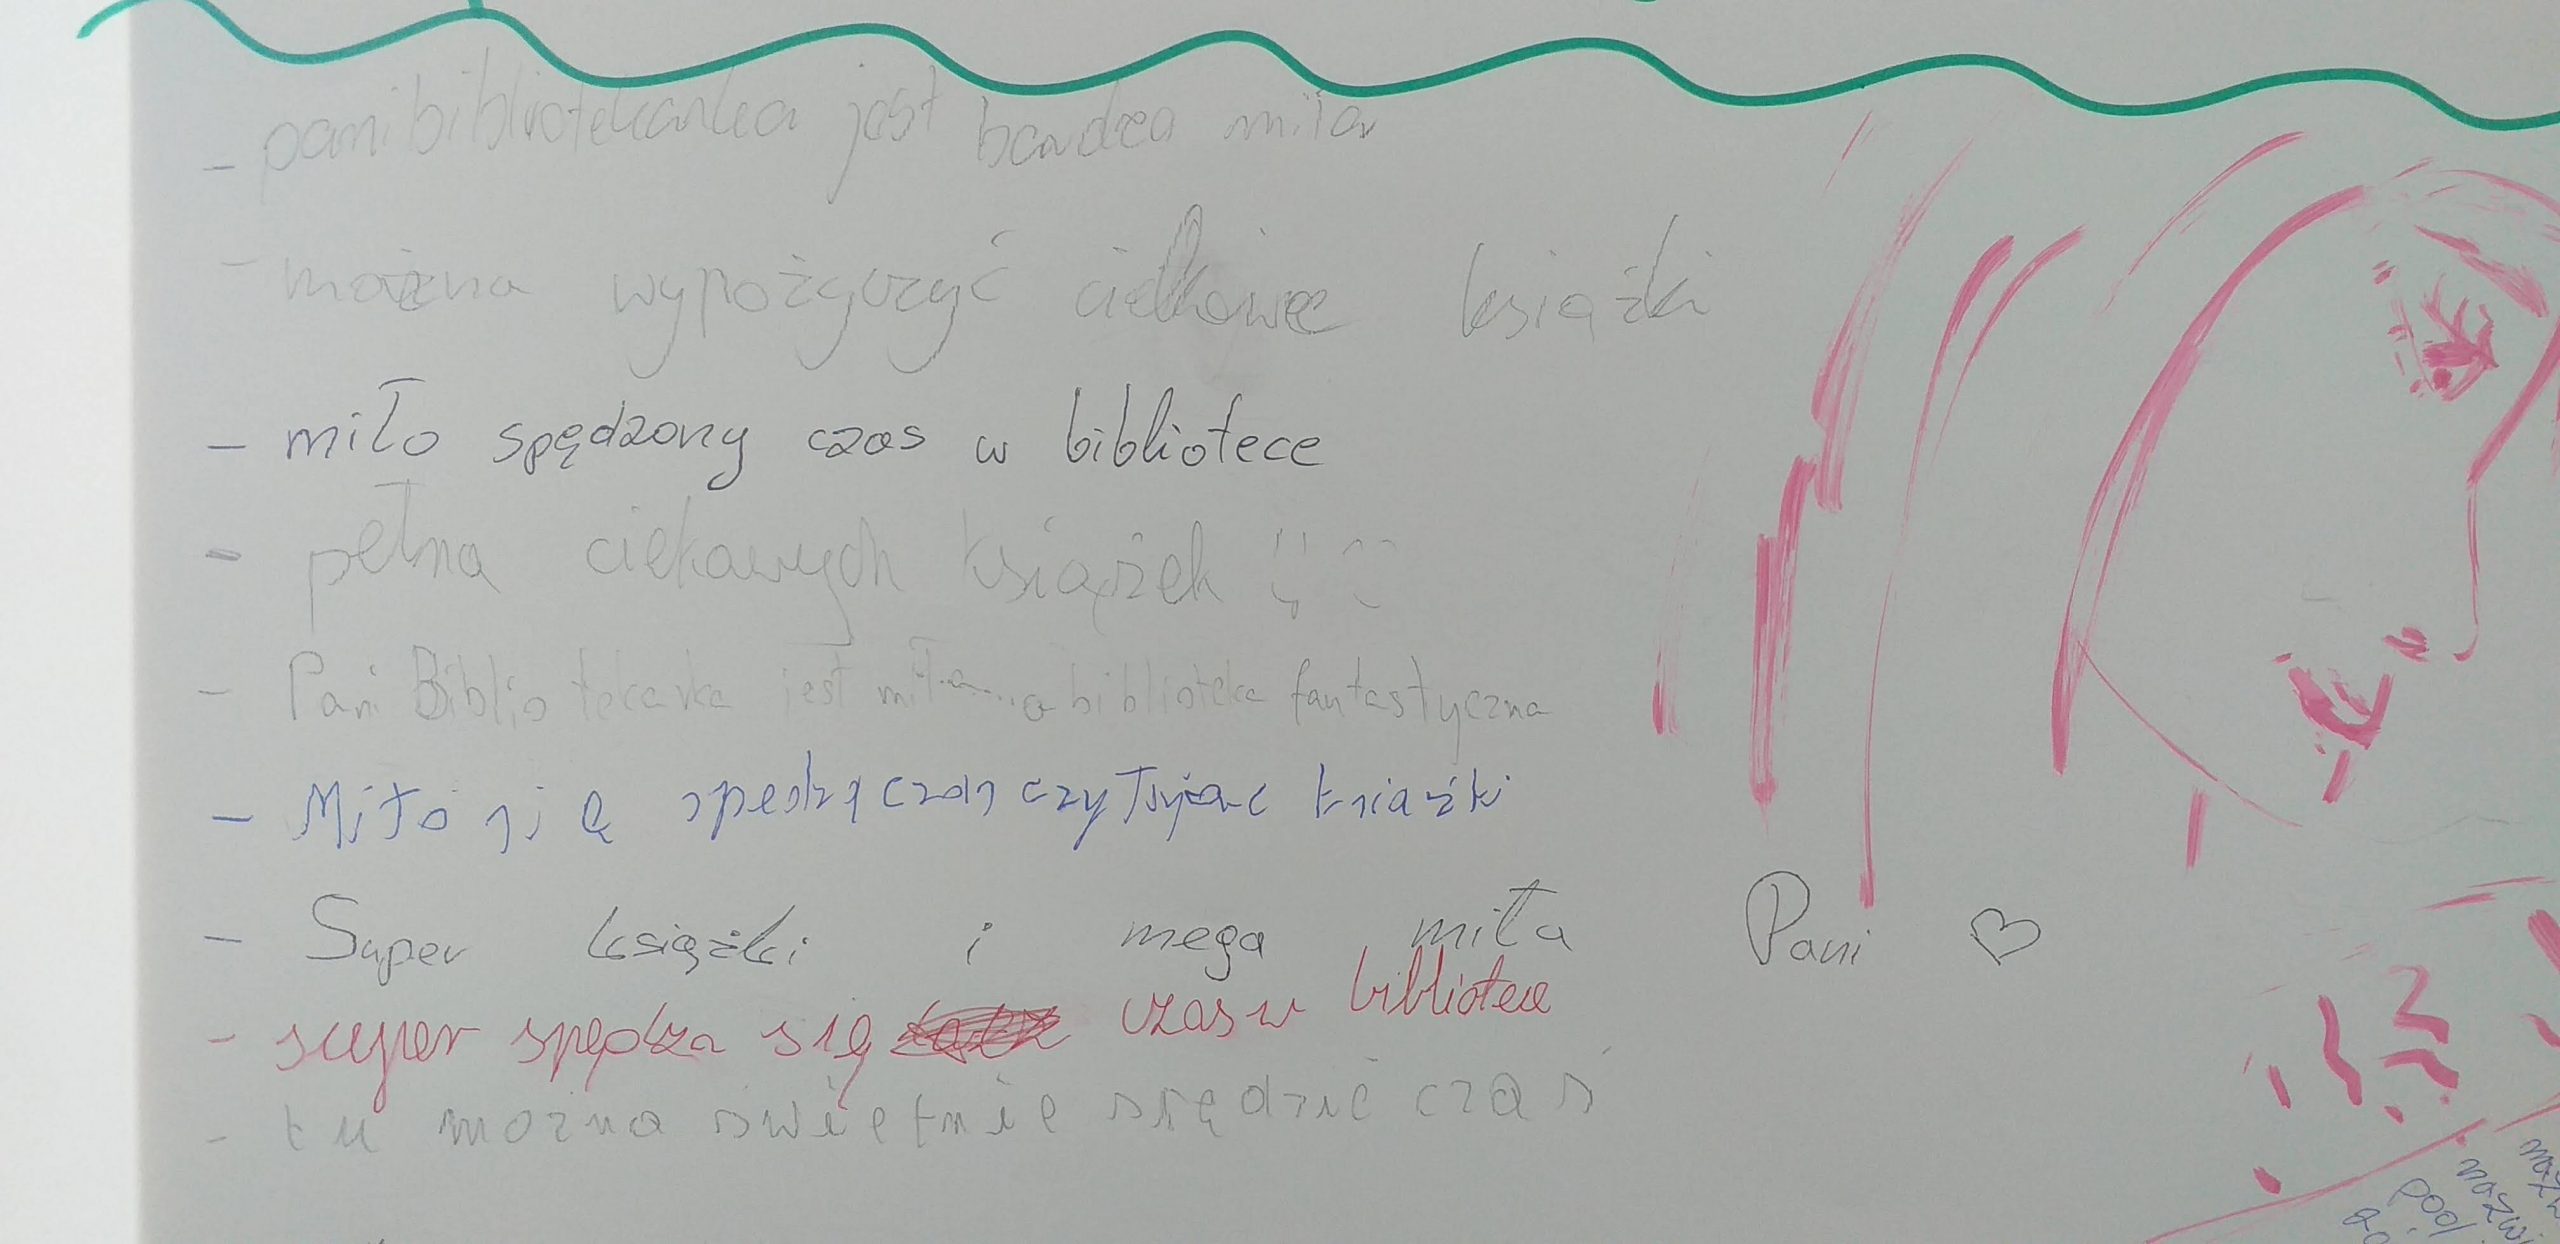 - pani bibliotekarka jest bardzo miła
- można wypożyczyć ciekawe książki
- miło spędzony czas w bibliotece
- pełna ciekawych książek !!
- Pani Bibliotekarka jest miła a biblioteka fantastyczna
- Miło się spędzą czas czytająac książki
- Super książki i mega miła Pani ♡
- super spędza się czas w bibliotece
- tu można świetnie spędzić czas